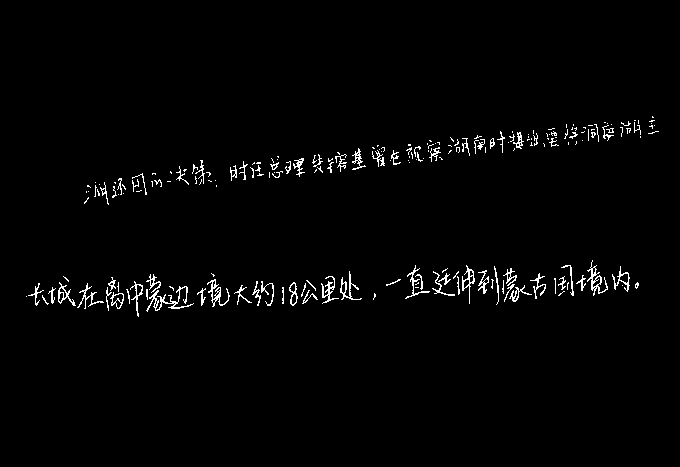 湖还田的决策,时任总理朱镕基曾在视察湖南时提出,要将洞庭湖主
长城在离中蒙边境大约18公里处,一直延伸到蒙古国境内。